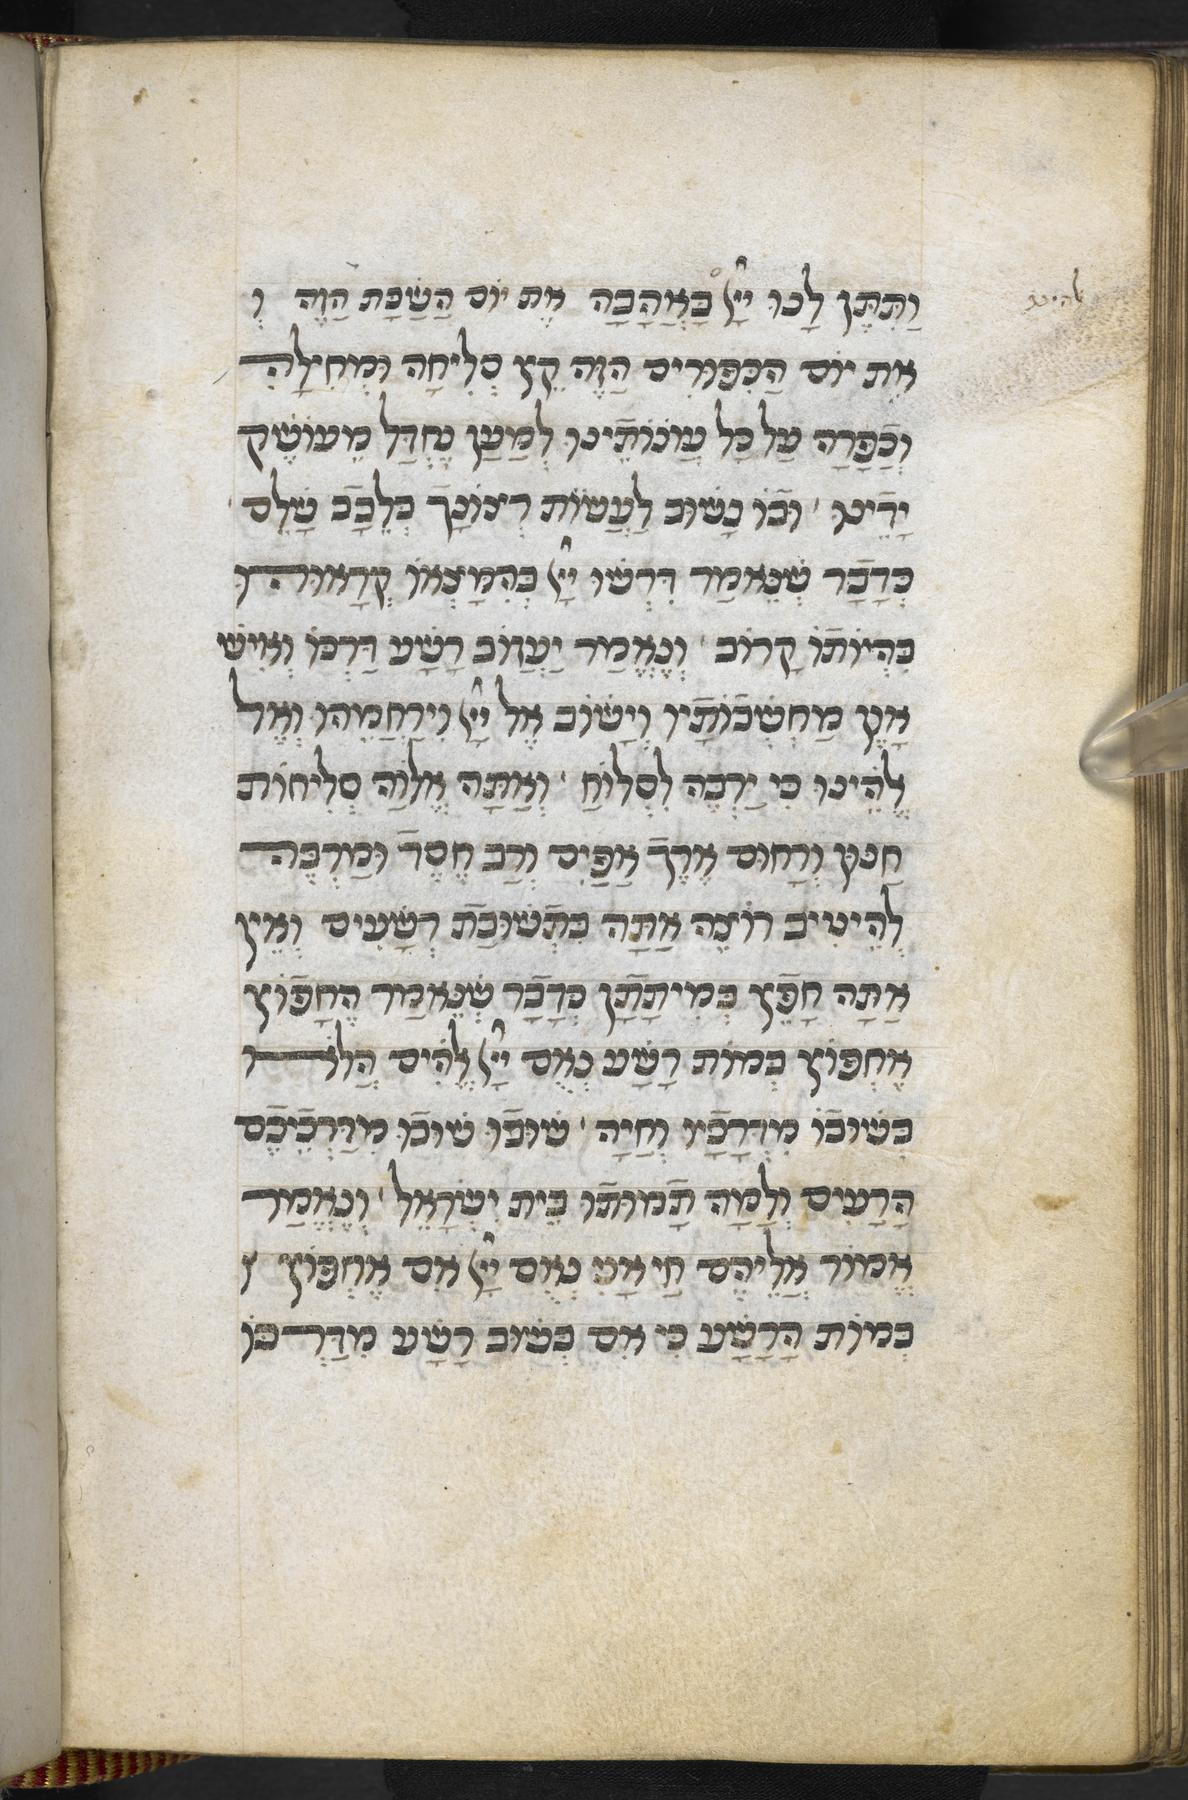 וַתִּתֶּן לָנוּ יְיָ בְּאַהֲבָה אֶת יוֹם הַשַּׁבָּת הַזֶּה וְ
אֶת יוֹם הַכִּפּוּרִים הַזֶּה קֵץ סְלִיחָה וּמְחִילָה
וְכַפָּרָה עַל כָּל עֲוֹנוֹתֵינוּ לְמַעַן נֶחְדַּל מֵעוֹשֶׁק
יָדֵינוּ ׳ וּבוֹ נָשׁוּב לַעֲשׂוֹת רְצוֹנָךְ בְּלֵבָב שָׁלֵם ׳
כְּדָבָר שֶׁנֶּאֱמַר דִּרְשׁוּ יְיָ בְּהִמָּצְאוֹ קְרָאוּהוּ
בִּהְיוֹתוֹ קָרוֹב ׳ וְנֶאֱמַר יַעֲזוֹב רָשָׁע דַּרְכּוֹ וְאִישׁ
אָוֶן מַחְשְׁבוֹתָיו וְיָשׁוֹב אֶל יְיָ וִירַחֲמֵהוּ וְאֶל
אֱלֹהֵינוּ כִּי יַרְבֶּה לִסְלוֹחַ ׳ וְאַתָּה אֱלוֹהַּ סְלִיחוֹת
חַנּוּן וְרַחוּם אֶרֶךְ אַפַּיִם וְרַב חֶסֶד וּמַרְבֶּה
לְהֵיטִיב רוֹצֶה אַתָּה בִּתְשׁוּבַת רְשָׁעִים וְאֵין
אַתָּה חָפֵץ בְּמִיתָתָן כְּדָבָר שֶׁנֶּאֱמַר הֶחָפוֹץ
אֶחְפּוֹץ בְּמוֹת רָשָׁע נְאֻם יְיָ אֱלֹהִים הֲלֹא
בְּשׁוּבוֹ מִדְּרָכָיו וְחָיָה ׳ שׁוּבוּ שׁוּבוּ מִדַּרְכֵיכֶם
הָרָעִים וְלָמָּה תָּמוּתוּ בֵּית יִשְׂרָאֵל ׳ וְנֶאֱמַר
אֱמוֹר אֲלֵיהֶם חַי אָנִי נְאֻם יְיָ אִם אֶחְפּוֹץ
בְּמוֹת הָרָשָׁע כִּי אִם בְּשׁוּב רָשָׁע מִדַּרְכּוֹ